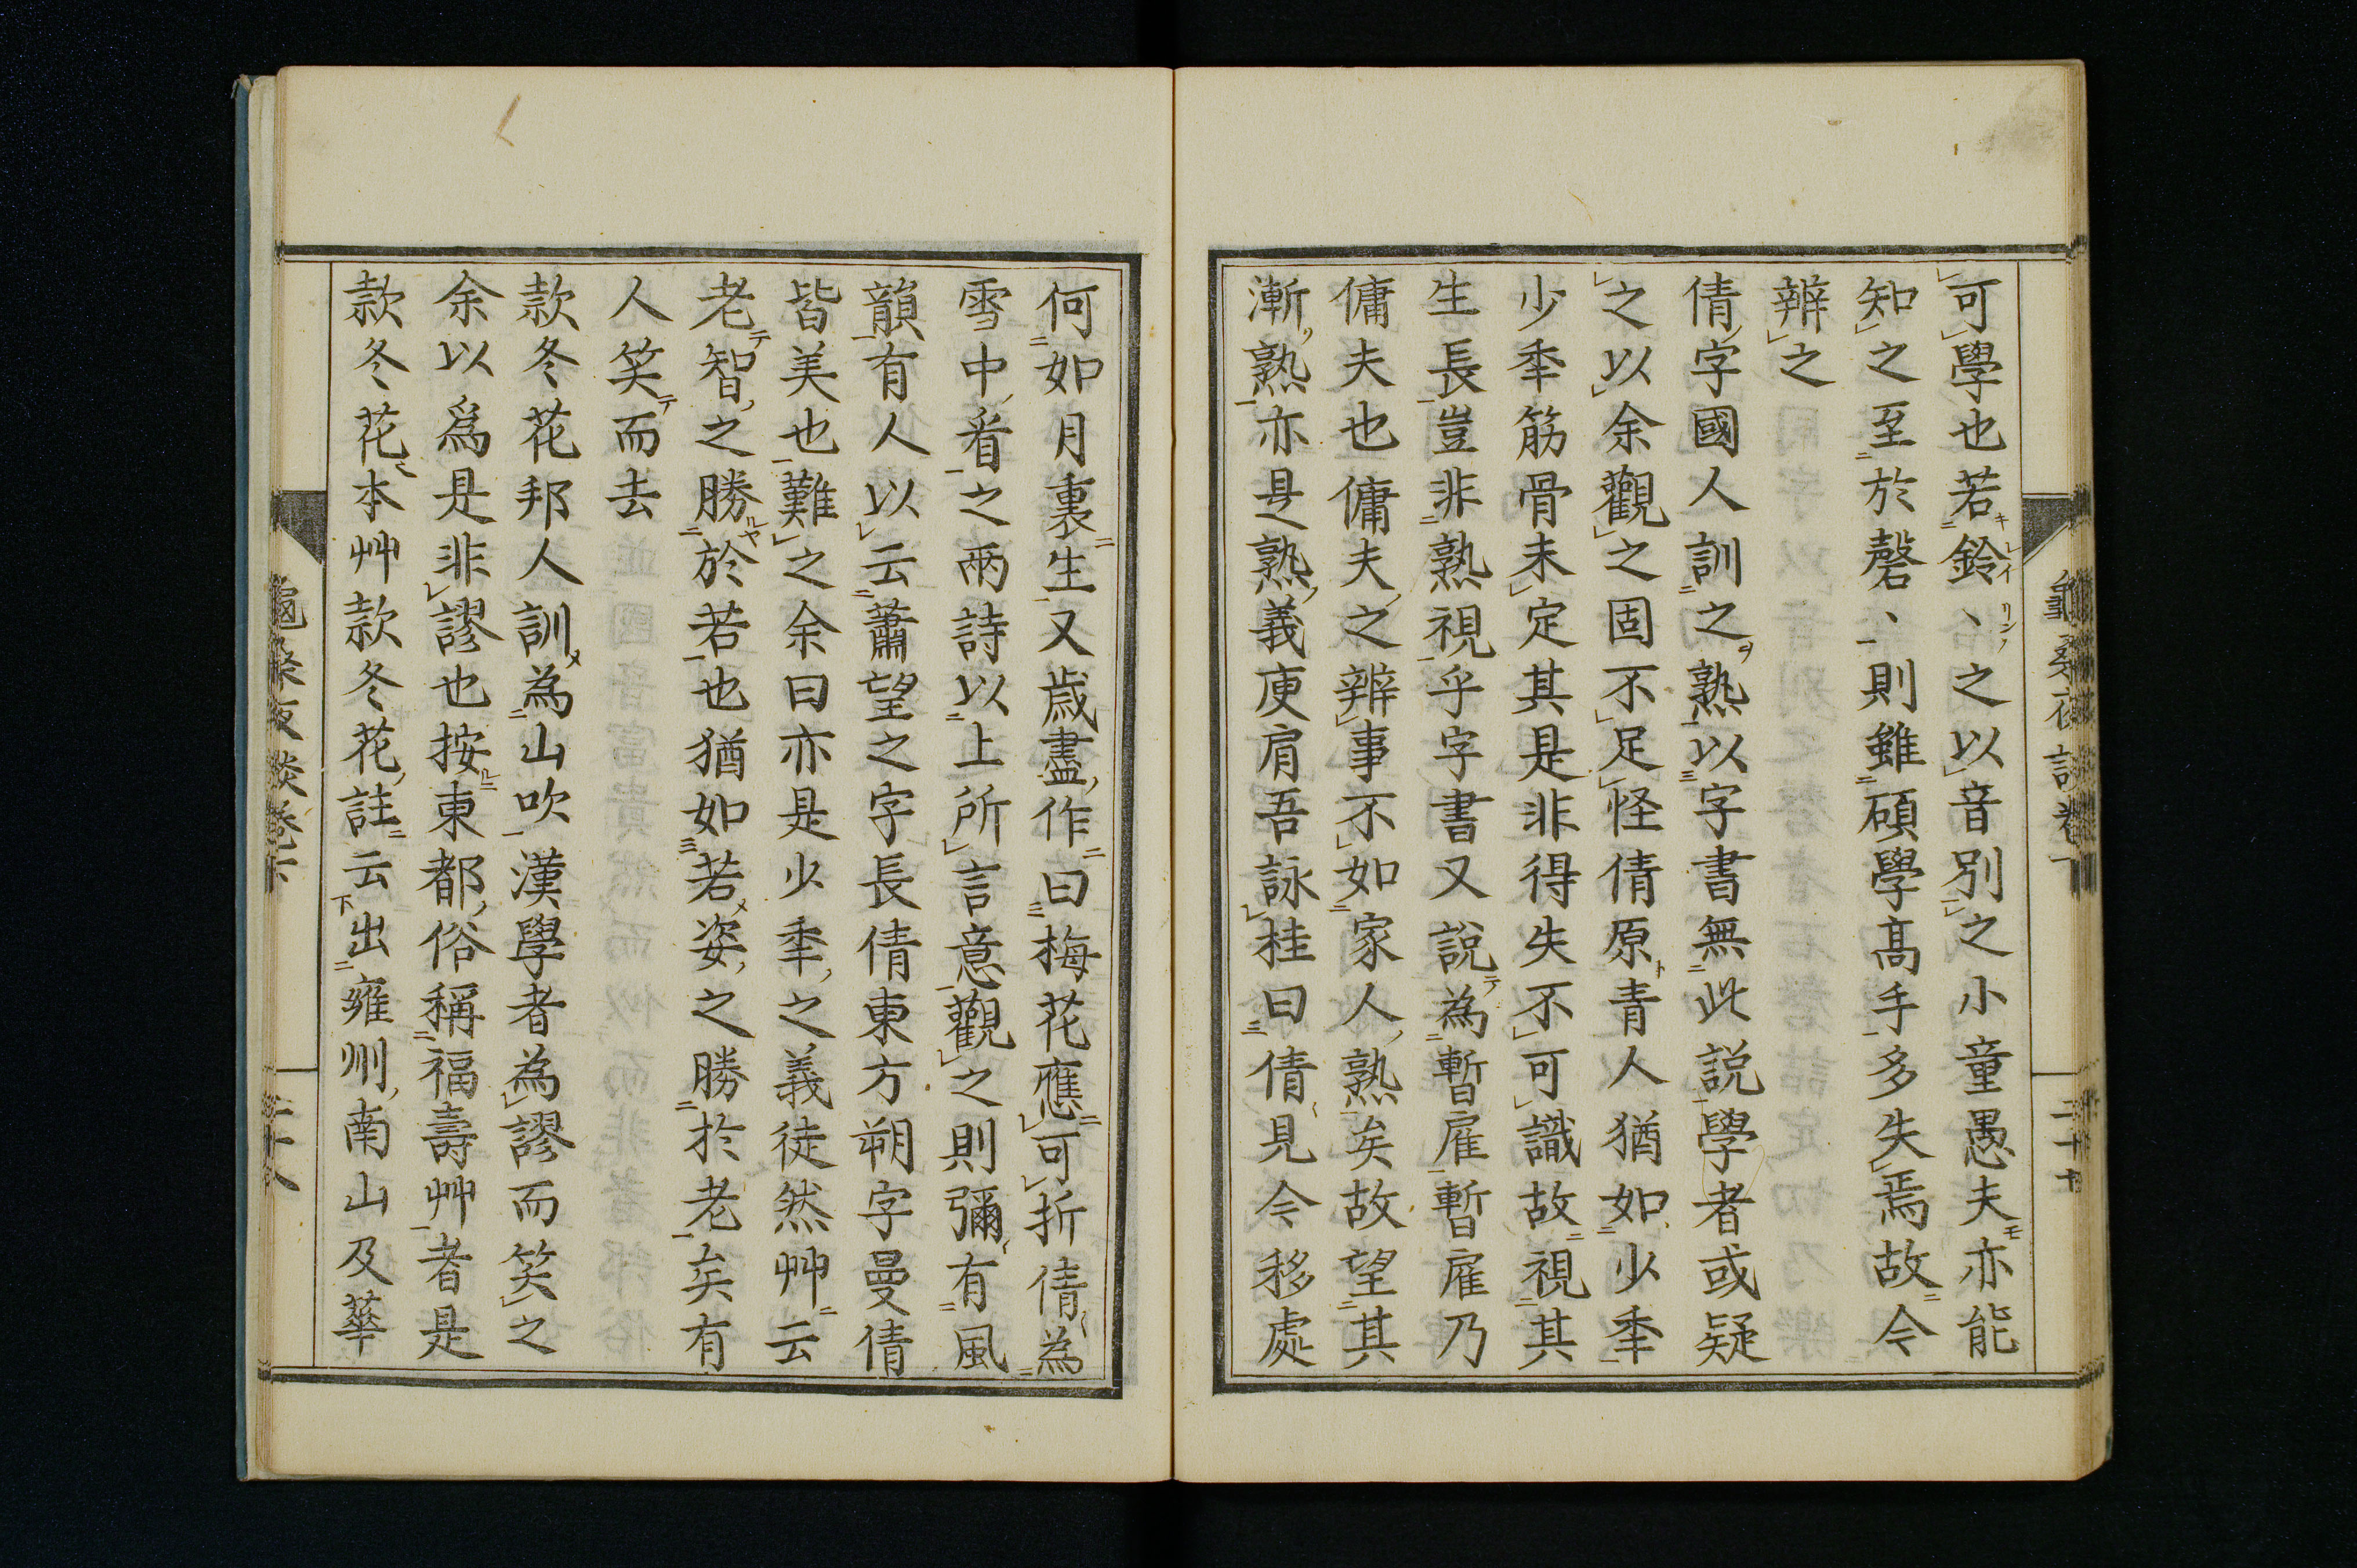 可學也若鈴、之以音別之小童愚夫亦能
知之至於磬、則雖碩學髙手多失焉故令
辨之
倩字國人訓之熟以字書無此説學者或疑
之以余觀之固不足怪倩原青人猶如少秊
少秊筋骨未定其是非得失不可識故視其
生長豈非熟視乎字書又說為暫雇暫雇乃
傭夫也傭夫之辨事不如家人熟矣故望其
漸熟亦是熟義庾肩吾詠桂曰倩見令移處
何如月裏生又歲盡作曰梅花應可折倩為
雪中看之兩詩以上所言意觀之則彌有風
韻有人以云蕭望之字長倩東方朔字曼倩
皆美也難之余曰亦是少秊之義徒然艸云
老智之勝於若也猶如若姿之勝於老矣有
人笑而去
款冬花邦人訓為山吹漢學者為謬而笑之
余以爲是非謬也按東都俗稱福壽艸者是
款冬花本艸款冬花註云出雍州南山及華